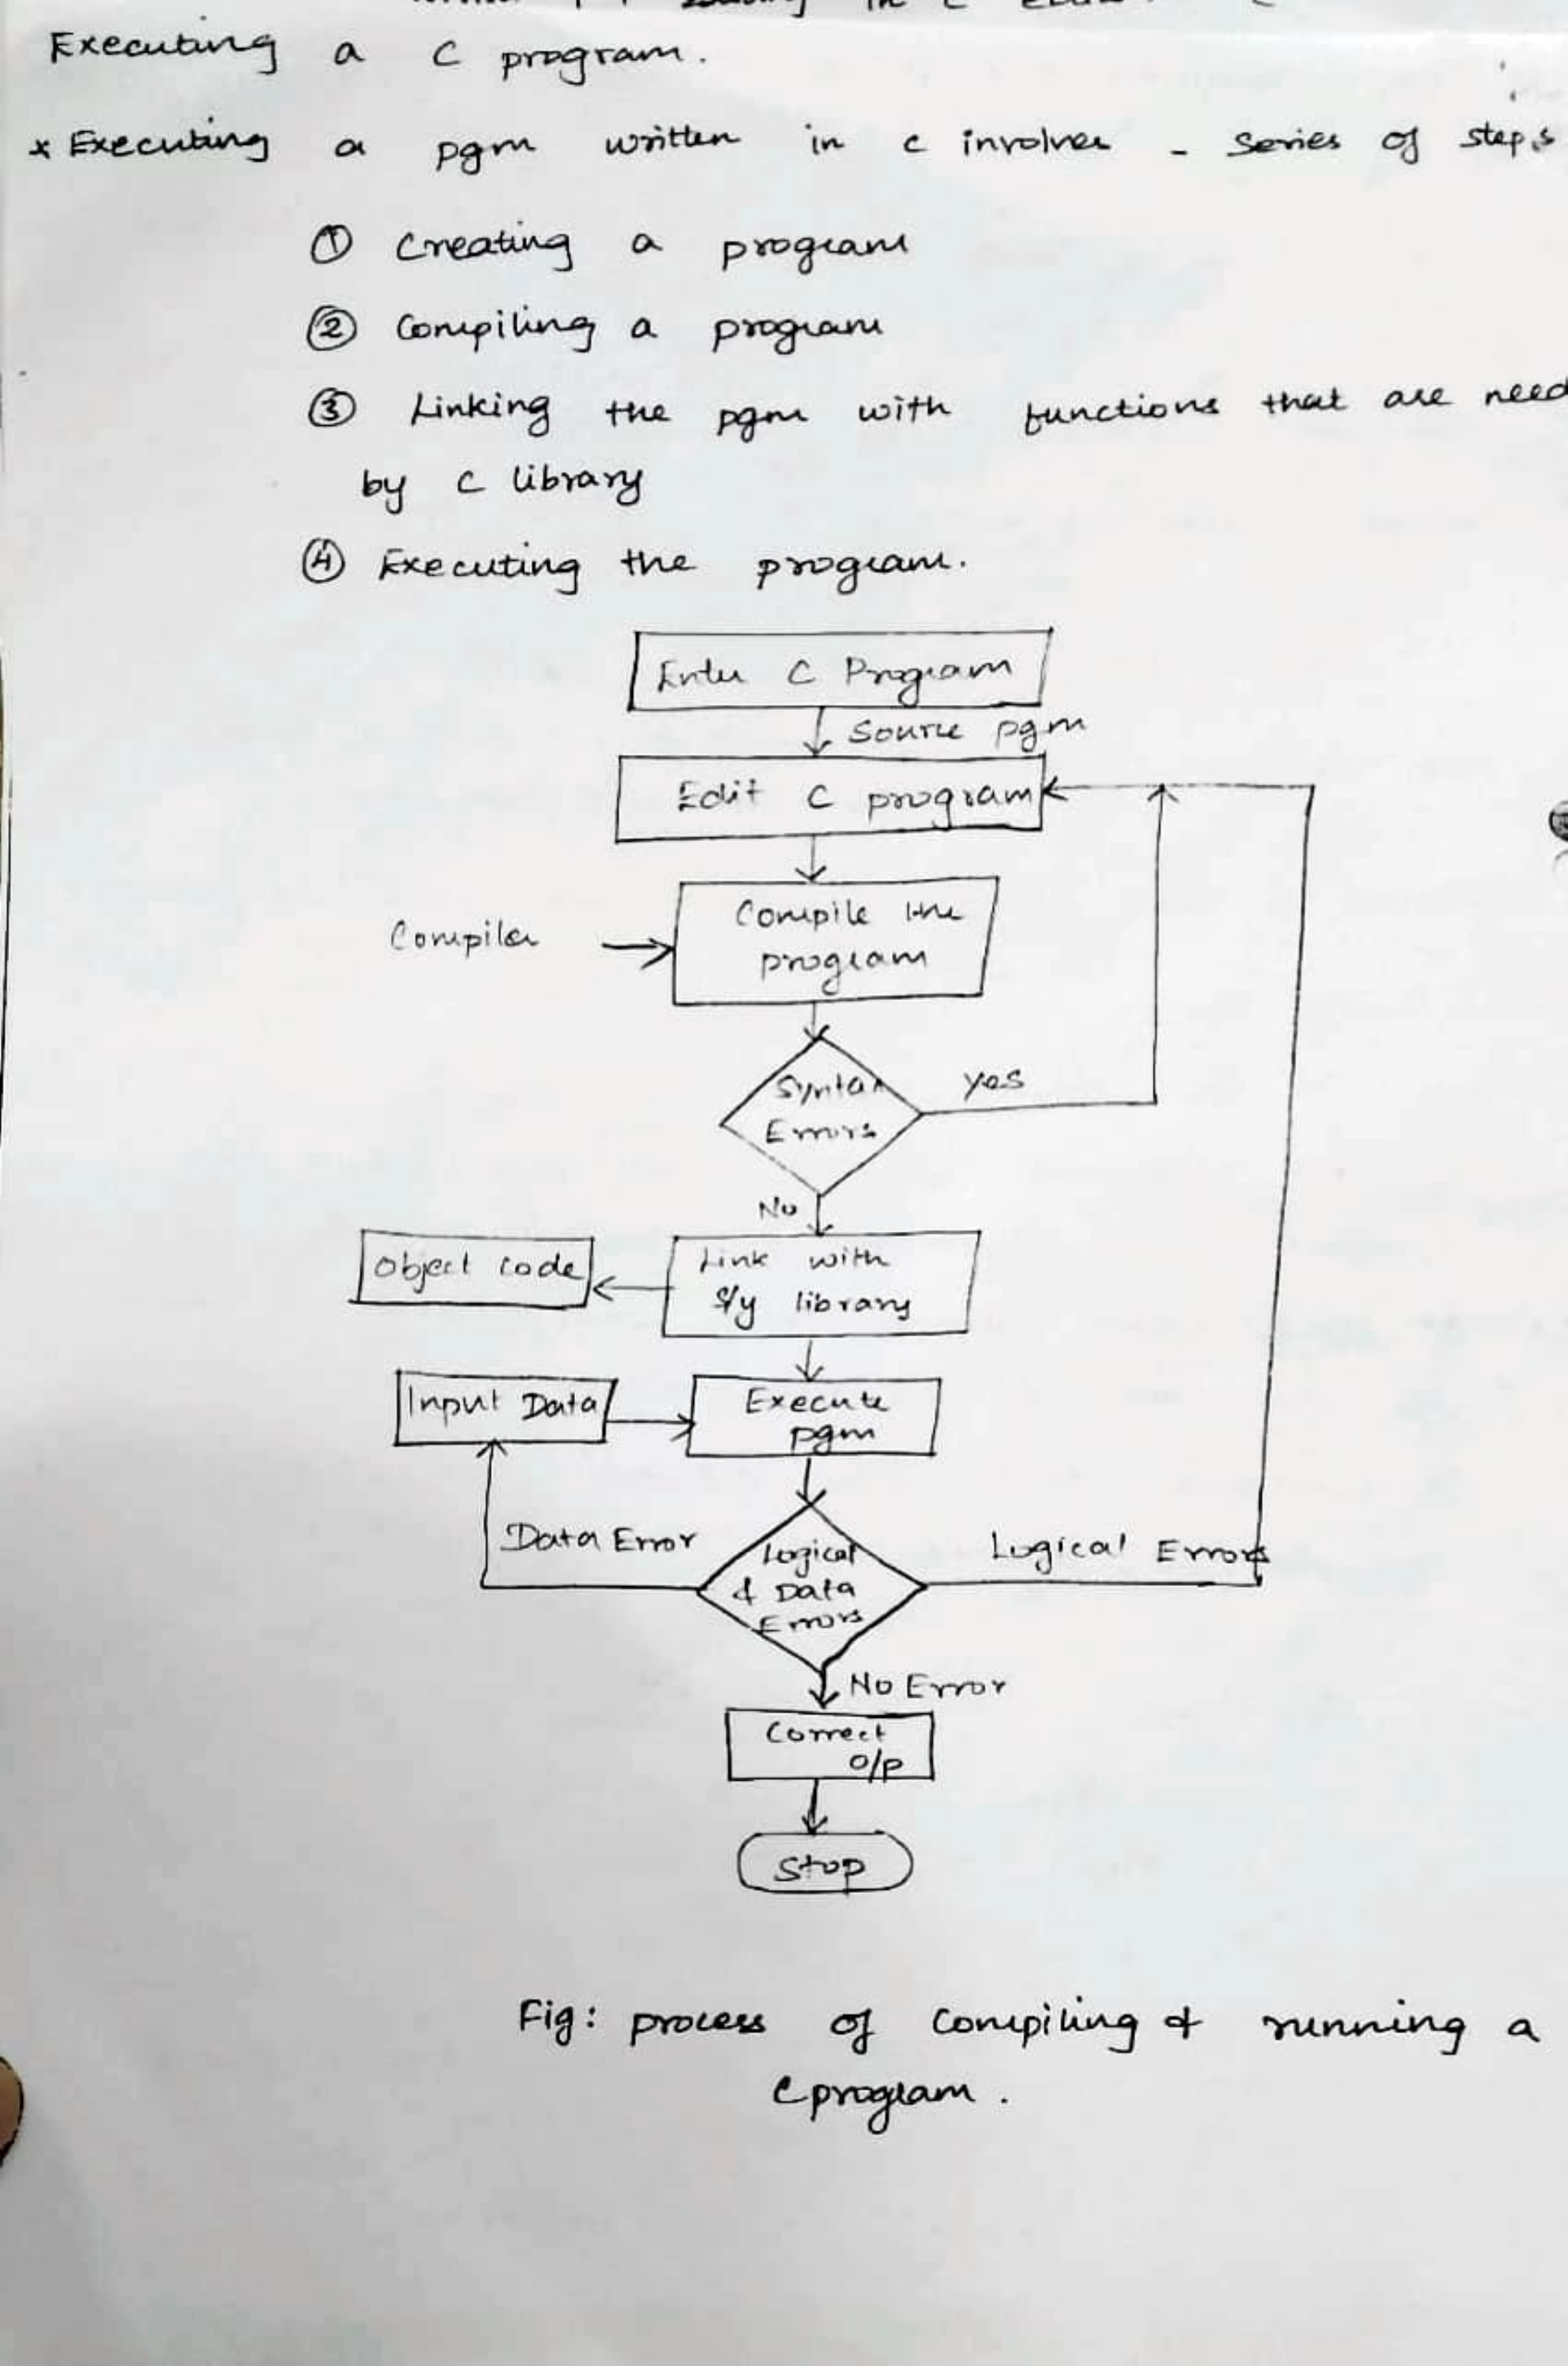 in C
Executing a C program.
* Executing a pgm written in c involves - series of steps
① Creating a program
② Compiling a program
③ Linking the pgm with functions that are need
by C library
④ Executing the program.
Enter C Program
Source pgm
Edit C program
Compiler
Compile the
program
Syntax
Errors
yes
No
Object code
Link with
s/y library
Input Data
Execute
pgm
Data Error
Logical
& Data
Errors
Logical Errors
No Error
Correct
o/p
Stop
Fig: process of compiling & running a
C program.